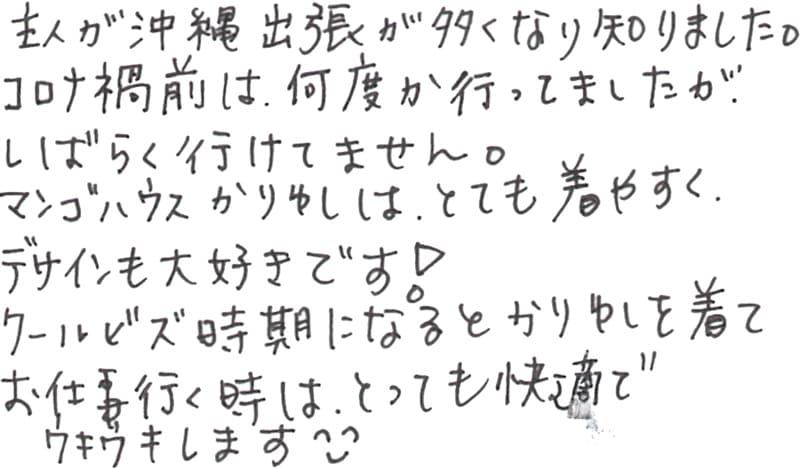 主人が沖縄出張が多くなり知りました。
コロナ禍前は、何度か行ってましたが、
しばらく行けてません。
マンゴハウスかりゆしは、とても着やすく、
デザインも大好きです!
クールビズ時期になるとかりゆしを着て
お仕事行く時は、とっても快適で
ウキウキします